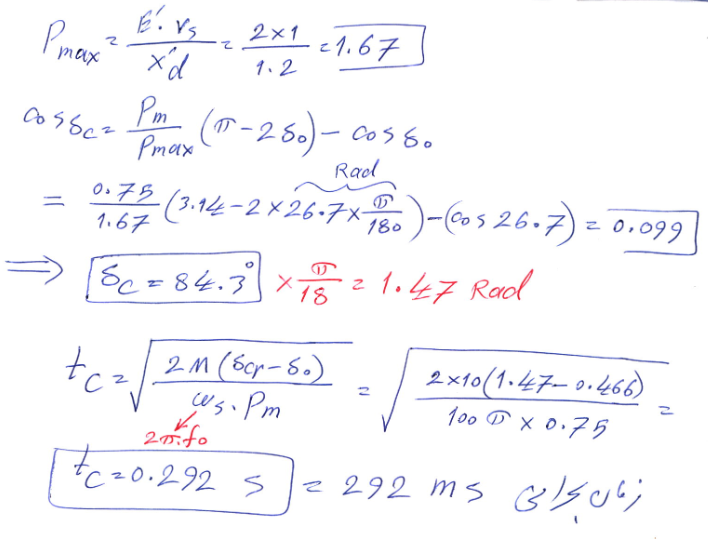 Pmax = E'. Vs / X'd = 2×1 / 1.2 = 1.67
cos δc = Pm / Pmax (π - 2δ0) - cos δ0
Rad
= 0.75 / 1.67 (3.14 - 2 × 26.7 × π / 180) - (cos 26.7) = 0.099
⟹ δc = 84.3° × π / 18 = 1.47 Rad
tc = √(2M (δcr - δ0) / ωs . Pm) = √(2×10(1.47 - 0.466) / 100 π × 0.75) =
2π.f0
tc = 0.292 s = 292 ms زمان بحرانی